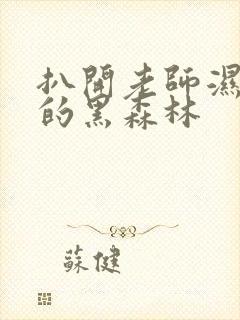 扒開老師濕
的黑森林
蘇健